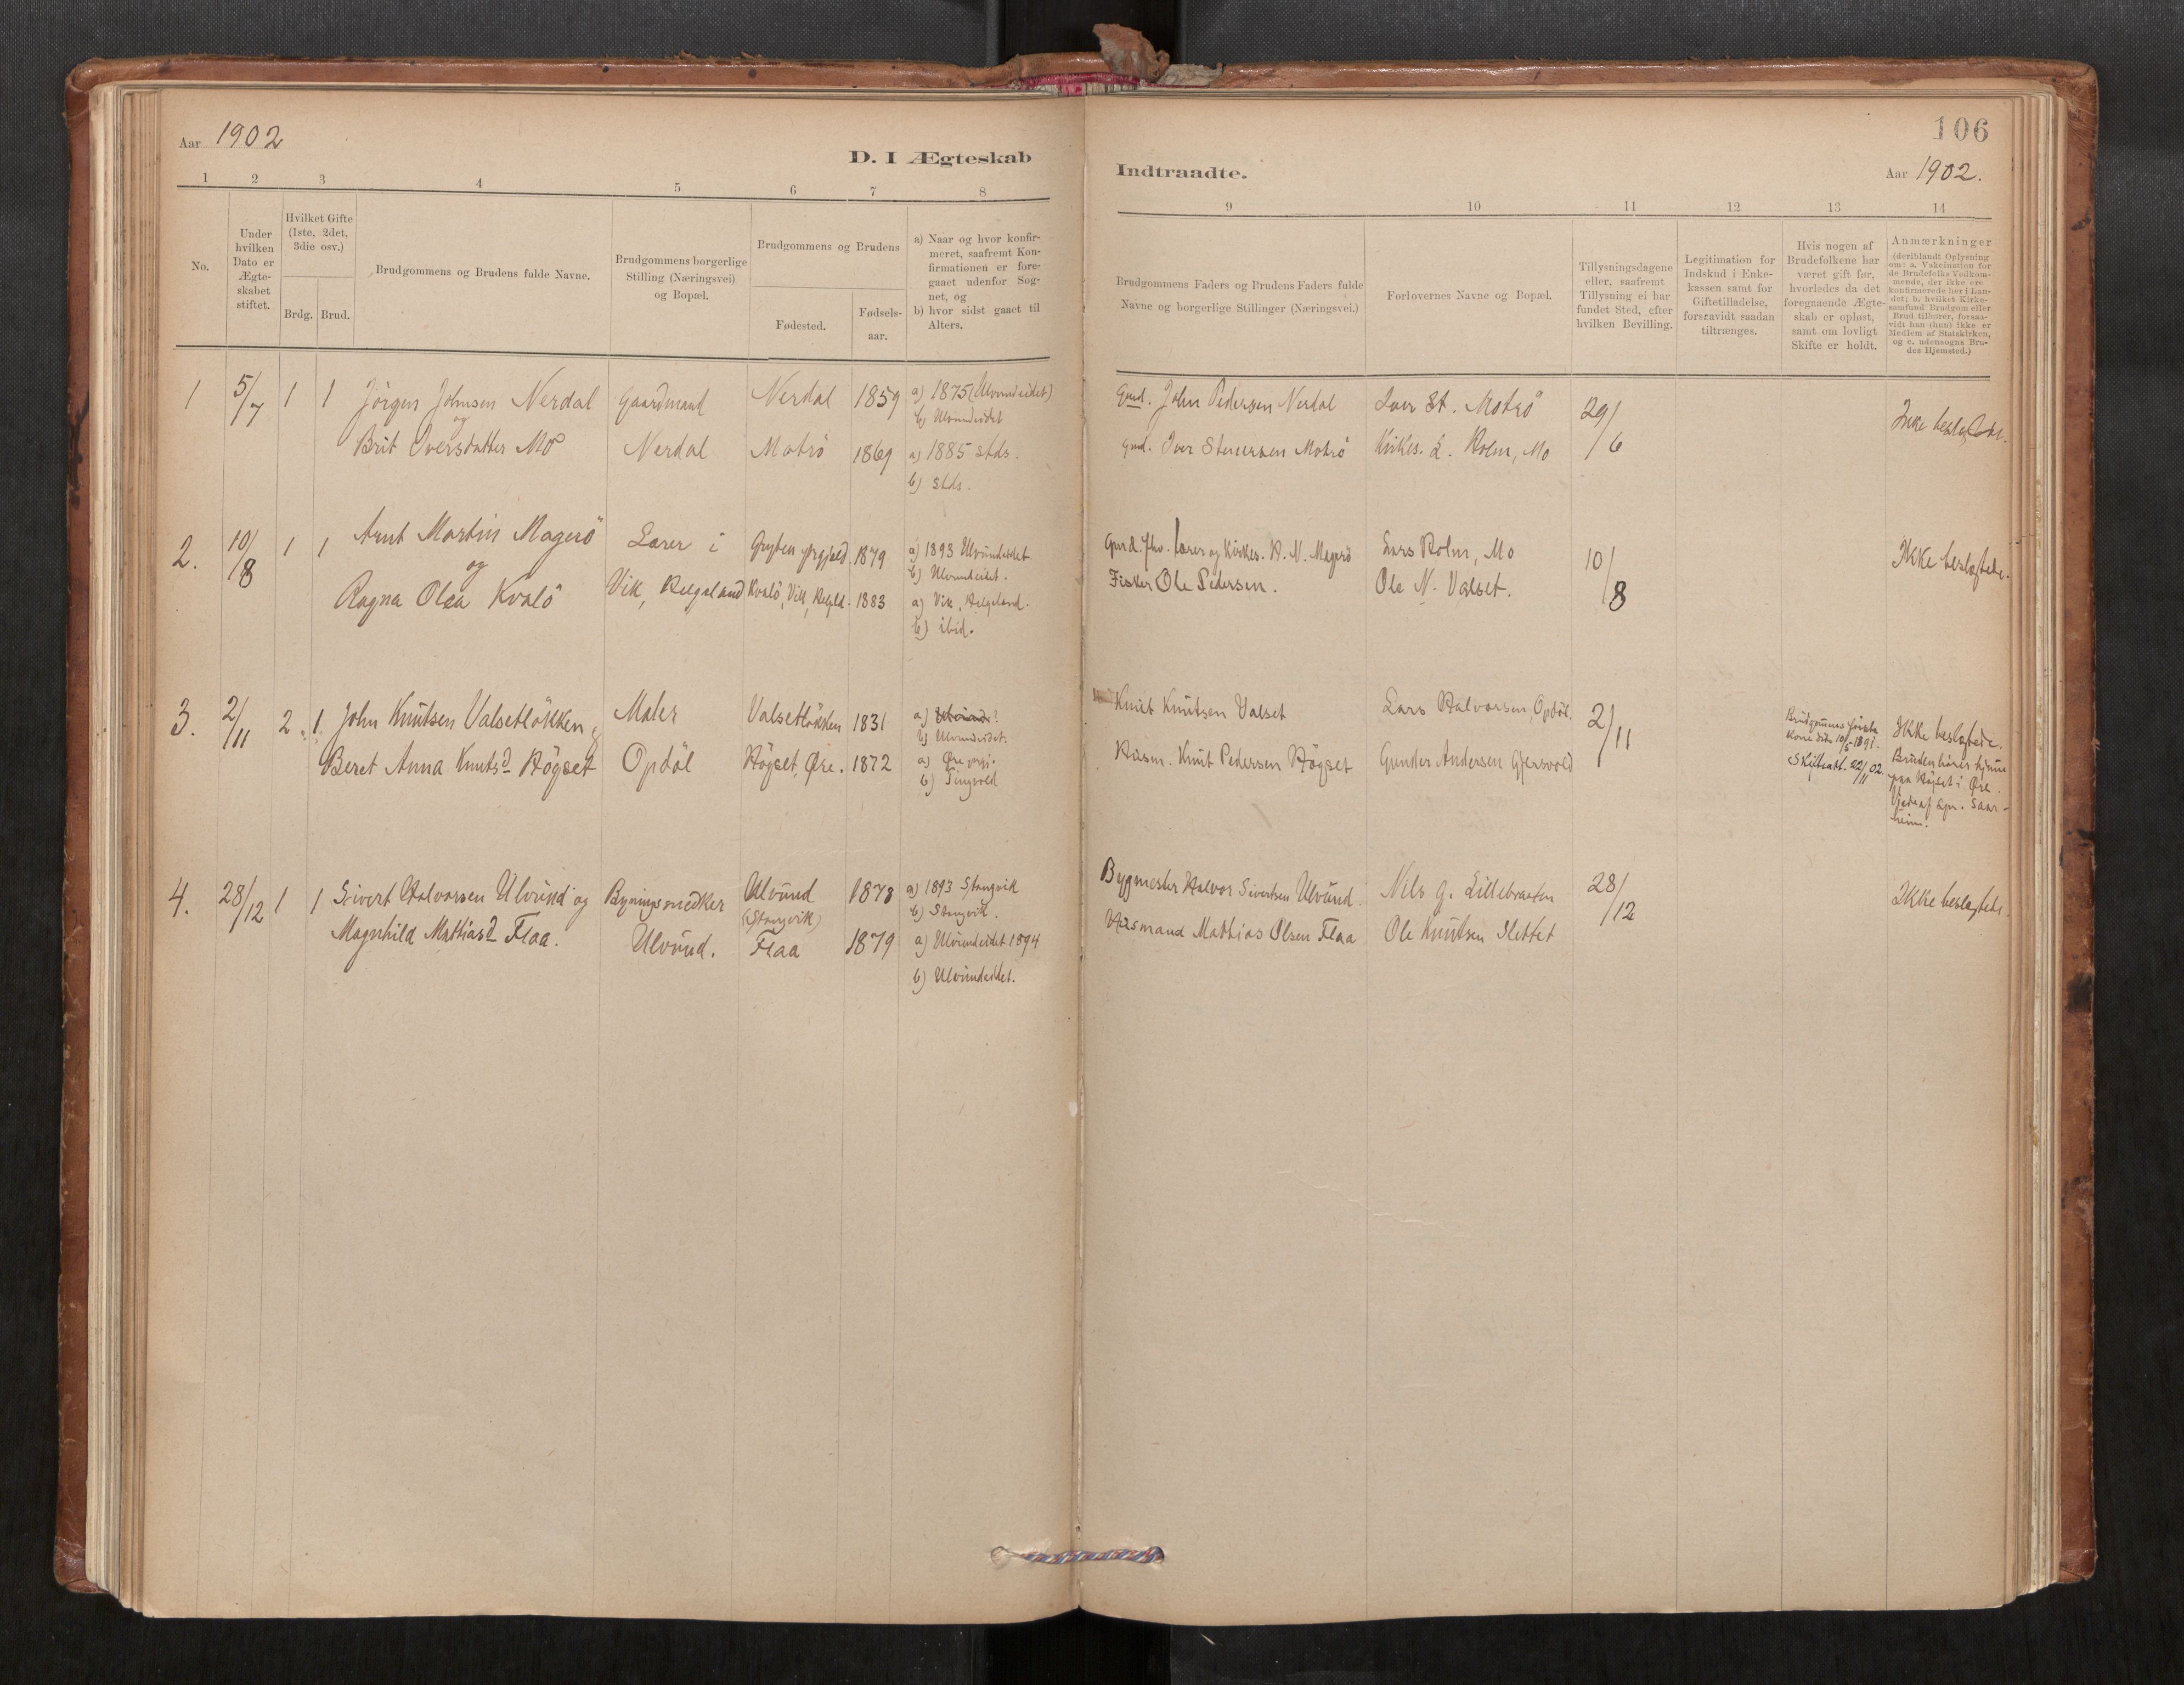 Aar 1902
D. I Ægteskab
1 2 3 4 5 6 7 8
No.
Under hvilken Dato er Ægte-skabet stiftet.
Hvilket Gifte (1ste, 2det, 3die osv.)
Brdg. Brud.
Brudgommens og Brudens fulde Navne.
Brudgommens borgerlige Stilling (Næringsvei) og Bopæl.
Brudgommens og Brudens
Fødested.
Fødsels-aar.
a) Naar og hvor konfir-meret, saafremt Kon-firmationen er fore-gaaet udenfor Sog-net, og
b) hvor sidst gaaet til Alters.
1 5/7 1 1 Jörgen Johnsen Nerdal Gaardmand Nerdal 1859 a) 1875 (Ulvundeidet)
og b) Ulvundeidet
Brit Iversdatter Mo Nerdal Motrö 1869 a) 1885 stds.
b) stds.
2. 10/8 1 1 Arnt Martin Magerö Lærer i Gryten prgjeld. 1879 a) 1893 Ulvundeidet
og b) Ulvundeidet.
Ragna Olea Kvalö Vik, Helgeland Kvalö, Vik, Helgld. 1883 a) Vik, Helgeland.
b) ibid.
3. 2/11 2. 1. John Knutsen Valsetlökken Maler Valsetlökken 1831 a) ?
b) Ulvundeidet.
Beret Anna Knutsd Högset Opdöl Högset, Øre. 1872 a) Øre prgj.
b) Tingvold
4. 28/12 1 1 Sivert Halvorsen Ulvund og Bygningssnedker Ulvund 1878 a) 1893 Stangvik
(Stangvik) b) Stangvik.
Magnhild Mathiasd Flaa. Ulvund. Flaa 1879 a) Ulvundeidet 1894
b) Ulvundeidet.
106
Indtraadte.
Aar 1902.
9 10 11 12 13 14
Brudgommens Faders og Brudens Faders fulde Navne og borgerlige Stillinger (Næringsvei.)
Forlovernes Navne og Bopæl.
Tillysningsdagene eller, saafremt Tillysning ei har fundet Sted, efter hvilken Bevilling.
Legitimation for Indskud i Enke-kassen samt for Giftetilladelse, forsaavidt saadan tiltrænges.
Hvis nogen af Brudefolkene har været gift før, hvorledes da det foregaaende Ægte-skab er opløst, samt om lovligt Skifte er holdt.
Anmærkninger (deriblandt Oplysning om: a. Vakcination for de Brudefolks Vedkom-mende, der ikke ere konfirmerede her i Lan-det; b. hvilket Kirke-samfund Brudgom eller Brud tilhører, forsaa-vidt han (hun) ikke er Medlem af Statskirken, og c. udensogns Bru-des Hjemsted.)
Gmd. John Pedersen Nerdal Iver St. Motrö 29/6 Ikke beslægtede.
Gmd. Iver Stenersen Motrö Kirkes. L. Holm, Mo
Gmd. fhv. lærer og Kirkes. H. N. Magerö Lars Holm, Mo 10/8 Ikke beslægtede.
Fisker Ole Pedersen. Ole N. Valset.
Knut Knutsen Valset Lars Halvorsen, Opdöl. 2/11 Brudgommens første Ikke beslægtede.
Kone död 10/5 1891. Bruden hører hjemme
Husm. Knut Pedersen Högset Gunder Andersen Gjersvold Skifteatt. 22/11 02. paa Högset i Øre.
Viede af spr. Saar-
heim.
Bygmester Halvor Sivertsen Ulvund. Nils G. Lillebraaten 28/12 Ikke beslægtede.
Husmand Mathias Olsen Flaa Ole Knutsen Slettet